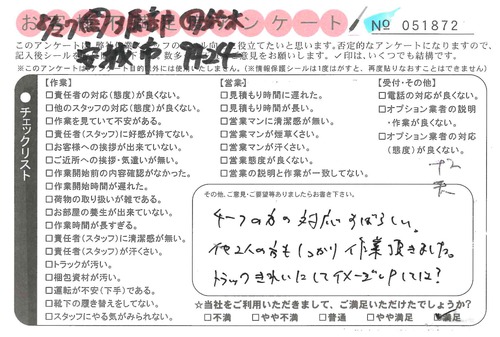 アンケート
№ 051872
このアンケートは
役立てたいと思います。否定的なアンケートになりますので、
記入後シール
意見をお願いします。✓印は、いくつでも結構です。
※このアンケートは
目的外には使用いたしません。(※情報保護シールは1度はがすと、再度貼りなおすことはできません)
チェックリスト
【作業】
□責任者の対応(態度)が良くない。
□他のスタッフの対応(態度)が良くない。
□作業を見ていて不安がある。
□責任者(スタッフ)に好感が持てない。
□お客様への挨拶が出来ていない。
□ご近所への挨拶・気遣いが無い。
□作業開始前の内容確認がなかった。
□作業開始時間が遅れた。
□荷物の取り扱いが雑である。
□お部屋の養生が出来ていない。
□作業時間が長すぎる。
□責任者(スタッフ)に清潔感が無い。
□責任者(スタッフ)が汗くさい。
□トラックが汚い。
□梱包資材が汚い。
□運転が不安(下手)である。
□靴下の履き替えをしてない。
□スタッフにやる気がみられない。
【営業】
□見積もり時間に遅れた。
□見積もり時間が長い。
□営業マンに清潔感が無い。
□営業マンが煙草くさい。
□営業マンが汗くさい。
□営業態度が良くない。
□営業の説明と作業が一致してない。
【受付・その他】
□電話の対応が良くない。
□オプション業者の説明
・作業が良くない。
□オプション業者の対応
(態度)が良くない。
その他、ご意見・ご要望等ありましたらお書き下さい。
チーフの方の対応すばらしい。
他2人の方もしっかり作業頂きました。
トラックきれいにしてイメージUPしては?
☆当社をご利用いただきまして、ご満足いただけたでしょうか?
□不満 □やや不満 □普通 □やや満足 □満足